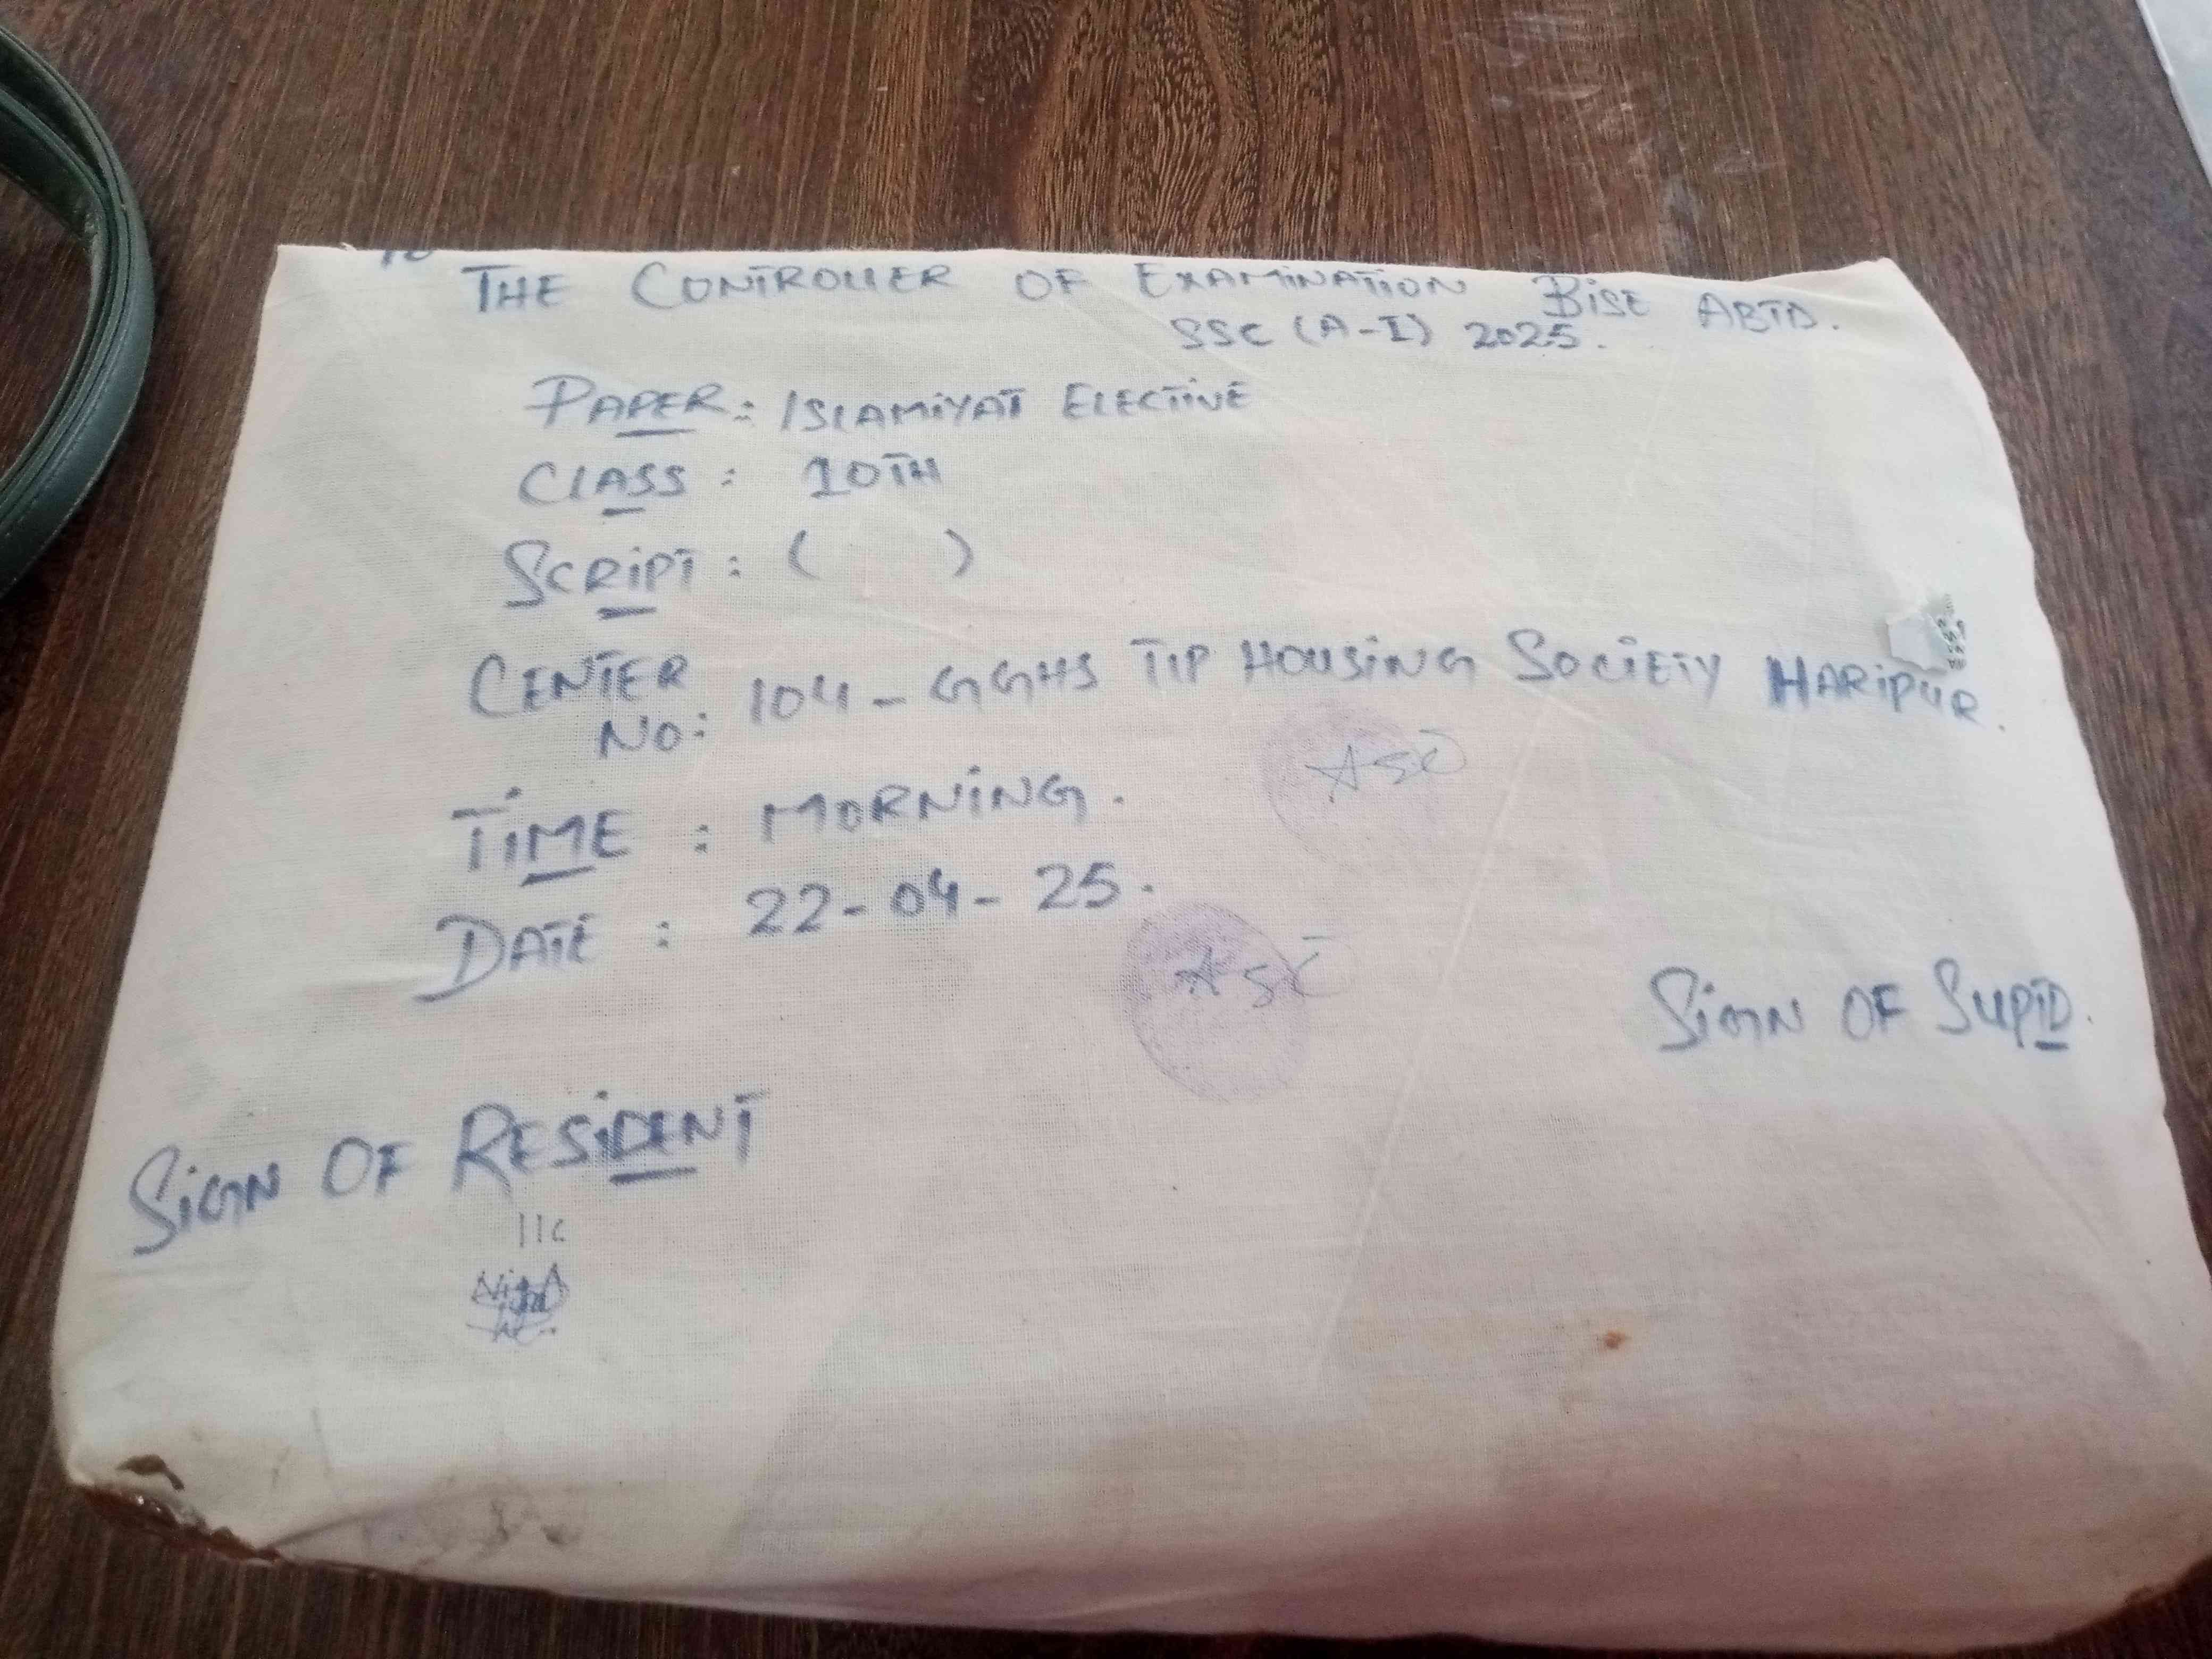 To
THE CONTROLLER OF EXAMINATION BISE ABTD.
SSC (A-I) 2025.
PAPER: ISLAMIYAT ELECTIVE
CLASS: 10TH
SCRIPT: ( )
CENTER NO: 104 - GGHS TIP HOUSING SOCIETY HARIPUR.
TIME: MORNING.
DATE: 22-04-25.
SIGN OF SUPTD.
SIGN OF RESIDENT